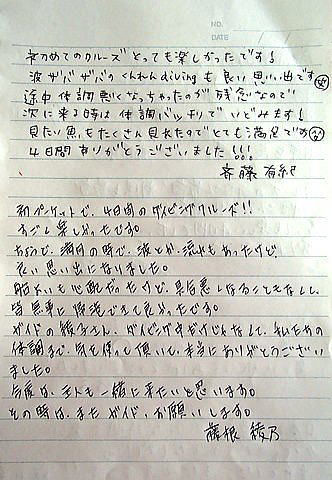 NO.
DATE
初めてのクルーズとっても楽しかったです!
波ザバザバのくんれんdivingも良い思い出です
途中体調悪くなっちゃたのが残念なので
次に来る時は体調バッチリでいどみます!
見たい魚もたくさん見れたのでとても満足です
4日間ありがとうございました!!!
斉藤 有紀
初プーケットで、4日間のダイビングクルーズ!!
すごく楽しかったです。
ちょうど、満月の時で、波とか、流れもあったけど、
良い思い出になりました。
船酔いも心配だったけど、具合悪くなることもなくて、
皆無事に帰港できて良かったです。
ガイドの綾子さん、ダイビング中だけじゃなくて、私たちの
体調まで、気を使って頂いて、本当にありがとうござい
ました。
今度は、主人も一緒に来たいと思います。
その時は、またガイド、お願いします。
藤根 綾乃